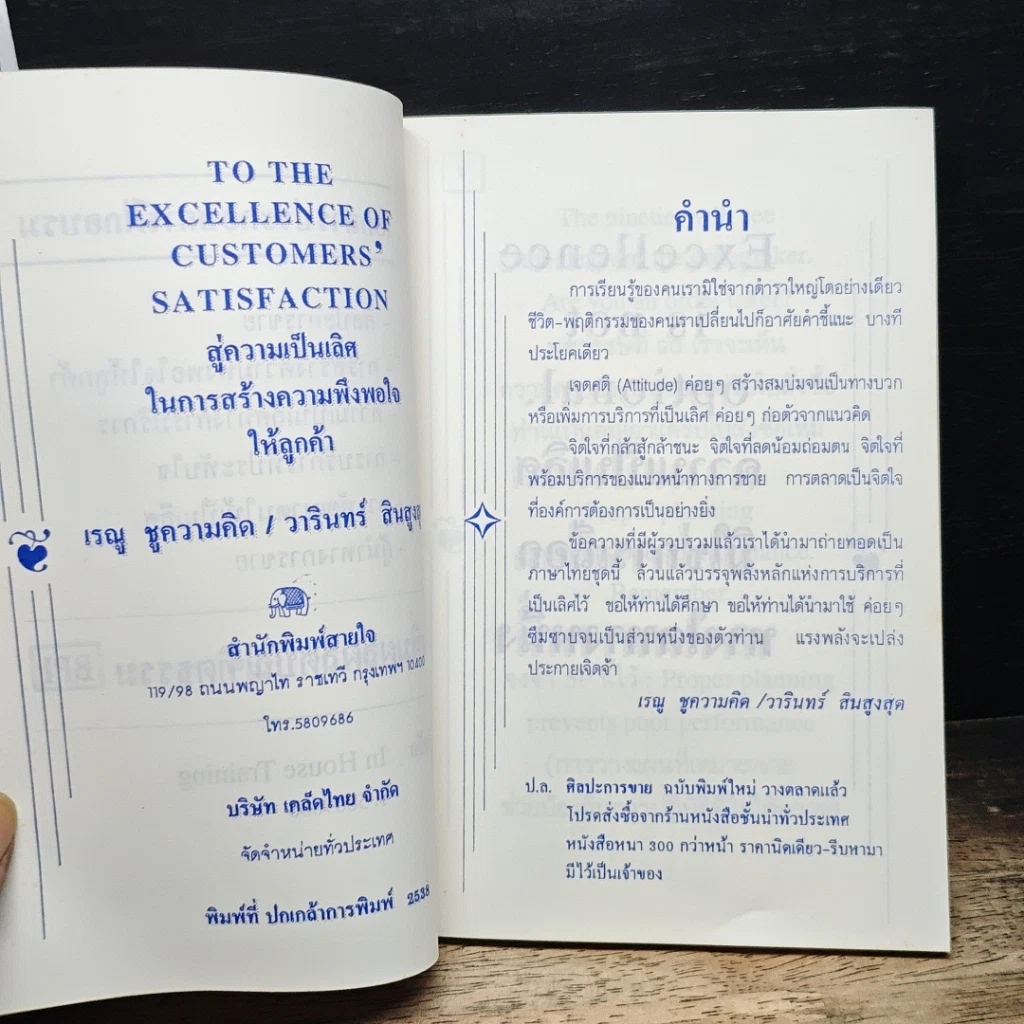 TO THE
EXCELLENCE OF
CUSTOMERS'
SATISFACTION
สู่ความเป็นเลิศ
ในการสร้างความพึงพอใจ
ให้ลูกค้า
เรณู ชูความคิด / วารินทร์ สินสูงสุด
สำนักพิมพ์สายใจ
119/98 ถนนพญาไท ราชเทวี กรุงเทพฯ 10400
โทร.5809686
บริษัท เคล็ดไทย จำกัด
จัดจำหน่ายทั่วประเทศ
พิมพ์ที่ ปกเกล้าการพิมพ์ 2538
คำนำ
การเรียนรู้ของคนเรามิใช่จากตำราใหญ่โตอย่างเดียว
ชีวิต-พฤติกรรมของคนเราเปลี่ยนไปก็อาศัยคำชี้แนะ บางที
ประโยคเดียว
เจตคติ (Attitude) ค่อยๆ สร้างสมบ่มจนเป็นทางบวก
หรือเพิ่มการบริการที่เป็นเลิศ ค่อยๆ ก่อตัวจากแนวคิด
จิตใจที่กล้าสู้กล้าชนะ จิตใจที่ลดน้อมถ่อมตน จิตใจที่
พร้อมบริการของแนวหน้าทางการขาย การตลาดเป็นจิตใจ
ที่องค์การต้องการเป็นอย่างยิ่ง
ข้อความที่มีผู้รวบรวมแล้วเราได้นำมาถ่ายทอดเป็น
ภาษาไทยชุดนี้ ล้วนแล้วบรรจุพลังหลักแห่งการบริการที่
เป็นเลิศไว้ ขอให้ท่านได้ศึกษา ขอให้ท่านได้นำมาใช้ ค่อยๆ
ซึมซาบจนเป็นส่วนหนึ่งของตัวท่าน แรงพลังจะเปล่ง
ประกายเจิดจ้า
เรณู ชูความคิด /วารินทร์ สินสูงสุด
ป.ล. ศิลปะการขาย ฉบับพิมพ์ใหม่ วางตลาดแล้ว
โปรดสั่งซื้อจากร้านหนังสือชั้นนำทั่วประเทศ
หนังสือหนา 300 กว่าหน้า ราคานิดเดียว-รีบหามา
มีไว้เป็นเจ้าของ